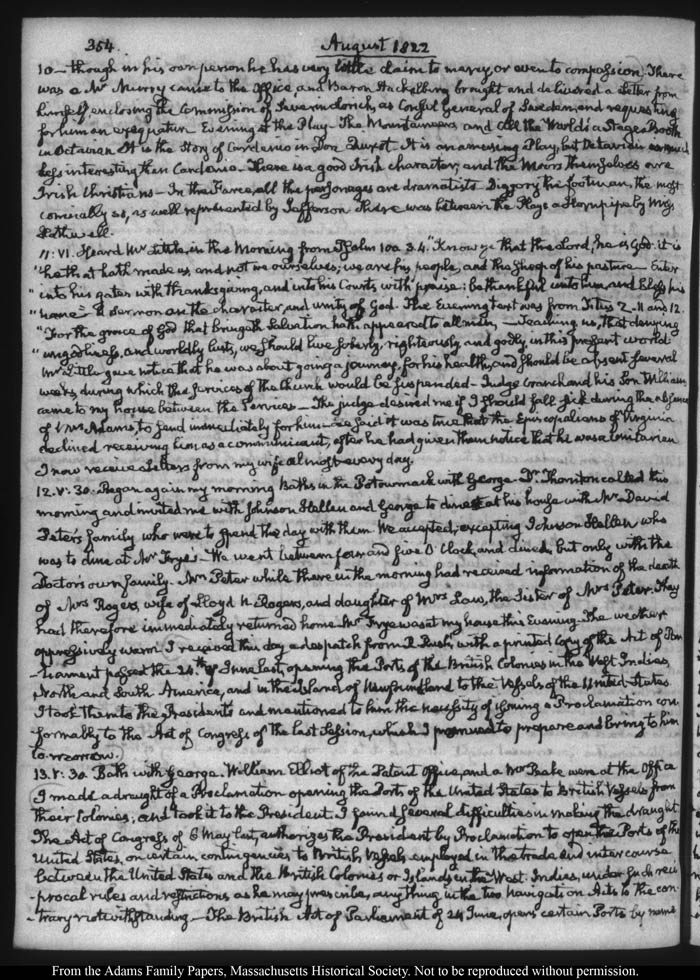 354.
August 1822
10 — though in his own person he has very little claim to mercy or even to compassion. There
was a Mr Murray came to the Office and Baron Stackelberg brought and delivered a Letter from
himself, enclosing the Commission of Severin Lorich, as Consul General of Sweden, and requesting
for him an exequatur. Evening at the Play. The Mountaineers, and All the World's a Stage. Booth
in Octavian. It is the Story of Cardenio in Don Quixot. It is an amusing Play, but Octavian is much
less interesting than Cardenio. There is a good Irish character; and the Moors themselves are
Irish Christians — In the Farce, all the personages are dramatists. Diggory the footman, the most
comically so, is well represented by Jefferson. There was between the Plays a Hornpipe by Mrs

11: VI. Heard Mr Little, in the Morning from Psalm 100. 3.4. "Know ye that the Lord, he is God: it is
"he that hath made us, and not we ourselves; we are his people, and the Sheep of his pasture — Enter
"into his gates with thanksgiving, and into his Courts with praise: be thankful unto him, and bless his
"name." A Sermon on the character, and unity of God. The Evening text was from Titus 2. 11 and 12.
"For the grace of God that bringeth Salvation hath appeared to all men, — Teaching us, that denying
"ungodliness, and worldly lusts, we should live soberly, righteously and godly, in this present world
Mr Little gave notice that he was about going a journey, for his health, and should be absent several
weeks, during which the Services of the Church would be suspended — Judge Cranch and his Son William
came to my house between the Services — The judge desired me if I should fall sick during the absence
of Mrs Adams, to send immediately for him — he said it was true that the Episcopalians of Virginia
declined receiving him, as a communicant, after he had given them notice that he was a Unitarian
I now receive Letters from my wife almost every day.
12. V: 30. Began again my morning Baths in the Potowmack with George. Dr. Thornton called this
morning and invited me with Johnson Hellen and George to dine at his house with Mr David
Peter's family who were to spend the day with them. We accepted; excepting Johnson Hellen who
was to dine at Mr Frye's — We went between four and five O'Clock, and dined, but only with the
Doctor's own family. Mrs Peter while there in the morning had received information of the death
of Mrs Rogers, wife of Lloyd N. Rogers, and daughter of Mrs Law, the Sister of Mrs Peter. They
had therefore immediately returned home. Mr Frye was at my house this Evening. The weather
oppressively warm. I received this day a despatch from R. Rush, with a printed Copy of the Act of Par-
liament passed the 24th of June last, opening the Ports of the British Colonies in the West Indies,
North and South America, and in the Island of Newfoundland to the Vessels of the United States
I took them to the President's and mentioned to him the necessity of issuing a Proclamation con-
formably to the Act of Congress of the last Session, which I promised to prepare and bring to him
tomorrow.
13. V: 30. Bath with George. William Elliot of the Patent Office, and a Mr Peake were at the Office
I made a draught of a Proclamation opening the Ports of the United States to British Vessels from
their Colonies; and took it to the President. I found several difficulties in making the draught
The Act of Congress of 6 May last, authorizes the President by Proclamation to open the Ports of the
United States, on certain contingencies to British Vessels employed in the trade and intercourse
between the United States and the British Colonies or Islands in the West Indies, under such reci-
procal rules and restrictions as he may prescribe, any thing in the two Navigation Acts to the con-
trary notwithstanding. — The British Act of Parliament of 24 June, opens certain Ports by name
From the Adams Family Papers, Massachusetts Historical Society. Not to be reproduced without permission.